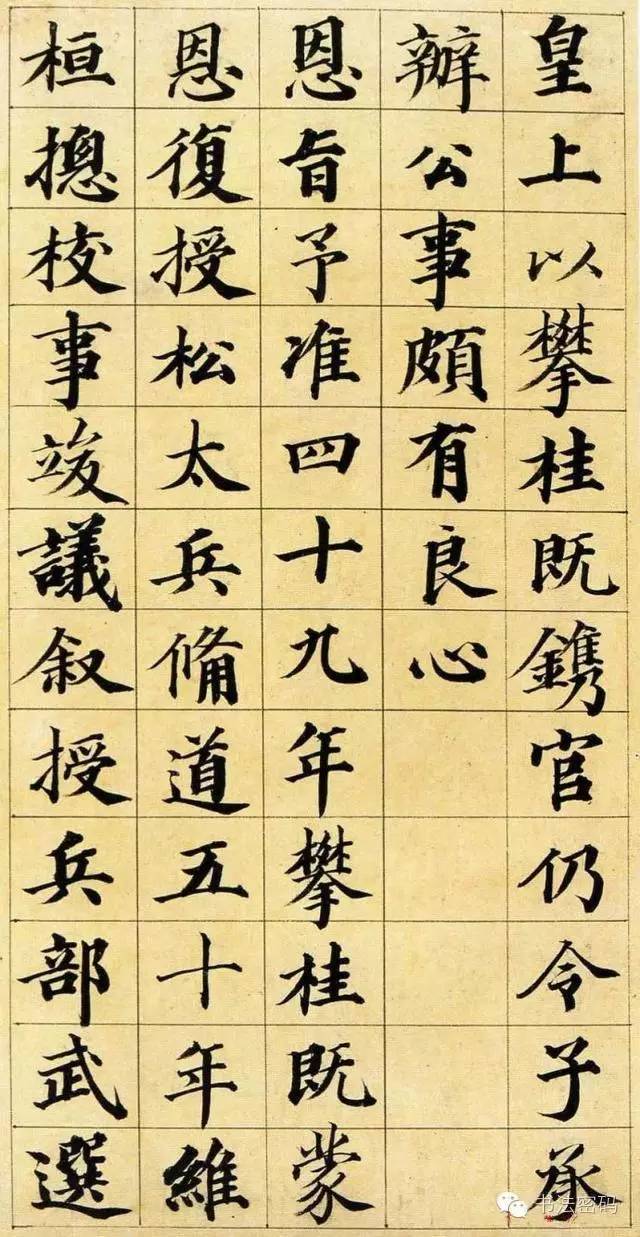 皇上以攀桂既鐫官仍令子承
辦公事頗有良心
恩旨予准四十九年攀桂既蒙
恩復授松太兵備道五十年維
桓摠校事竣議叙授兵部武選
书法密码